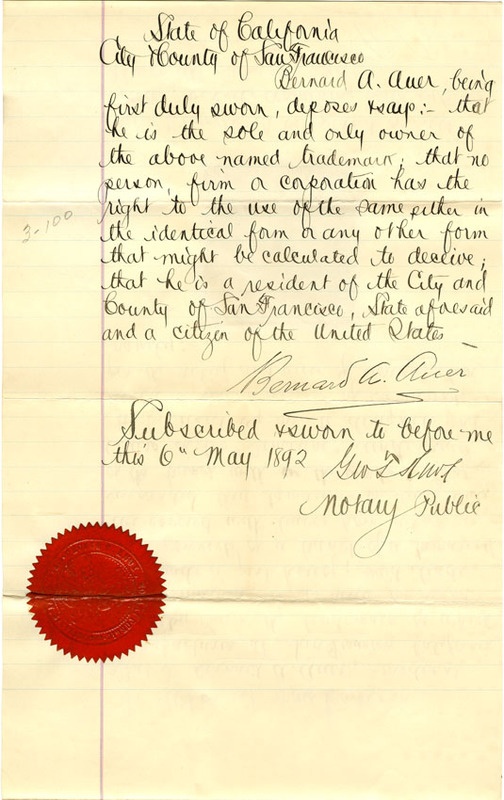 State of California
City & County of San Francisco
Bernard A. Auer, being
first duly sworn, deposes & says:- that
he is the sole and only owner of
the above named trademark; that no
person, firm or corporation has the
right to the use of the same either in
the identical form or any other form
that might be calculated to deceive;
that he is a resident of the City and
County of San Francisco, State aforesaid
and a citizen of the United States
Bernard A. Auer
Subscribed & sworn to before me
this 6th May 1892
Geo T
Notary Public
3-100